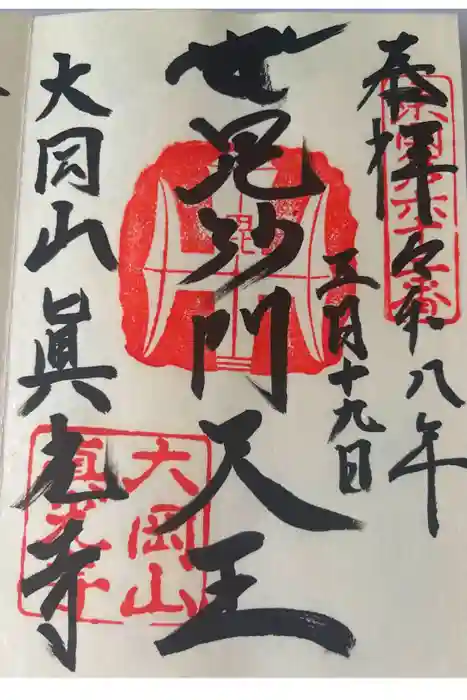 奉拝 令和八年
五月十九日
毘沙門天王
毘
大岡山 眞光寺
大岡山
眞光寺